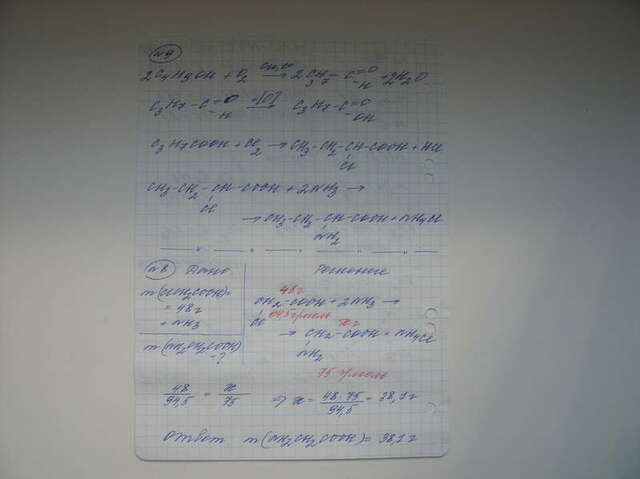 №9
2C4H9OH + O2 CuO,t° → 2C3H7-C=O -H + 2H2O
C3H7-C=O -H +[O] → C3H7-C=O -OH
C3H7COOH + Cl2 → CH3-CH2-CH-COOH + HCl
Cl
CH3-CH2-CH-COOH + 2NH3 →
Cl
→ CH3-CH2-CH-COOH + NH4Cl
NH2
№8 Дано Решение
m(ClCH2COOH)= 48г
= 48г CH2-COOH + 2NH3 →
+ NH3 Cl 94,5г/моль xг
m(NH2CH2COOH) → CH2-COOH + NH4Cl
-? NH2
75 г/моль
48/94,5 = x/75 ⇒ x = 48·75/94,5 = 38,1г
Ответ m(NH2CH2COOH) = 38,1г